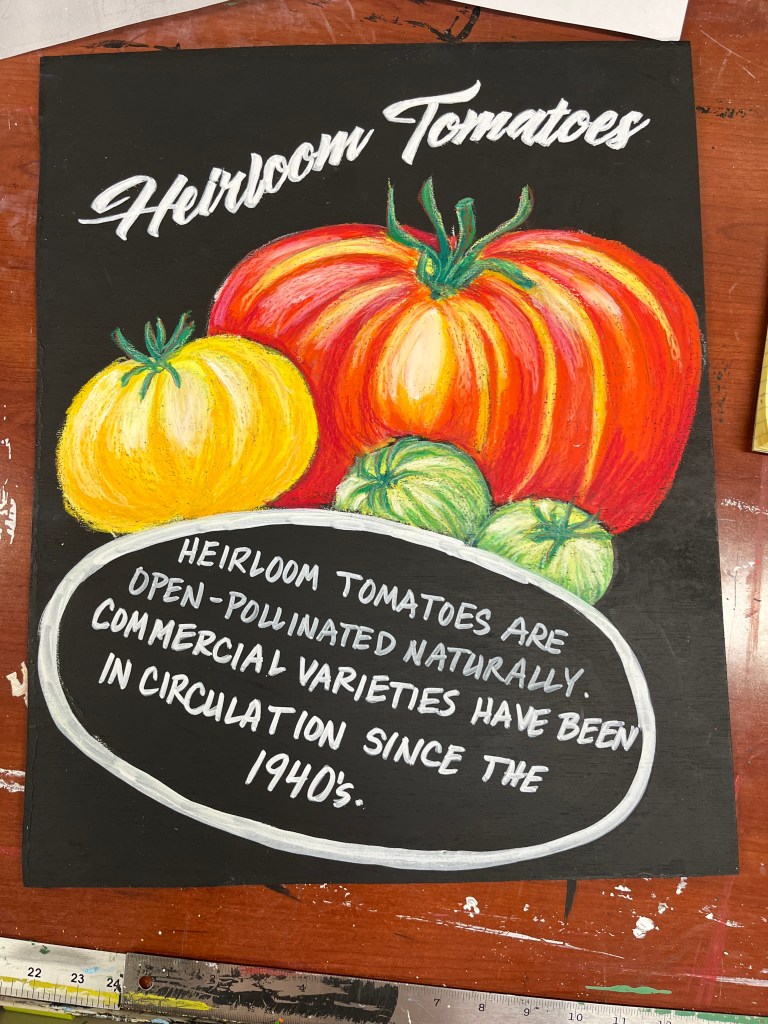 Heirloom Tomatoes
HEIRLOOM TOMATOES ARE
OPEN-POLLINATED NATURALLY.
COMMERCIAL VARIETIES HAVE BEEN
IN CIRCULATION SINCE THE
1940's.
22 23 24
7 8 9 10 11 12